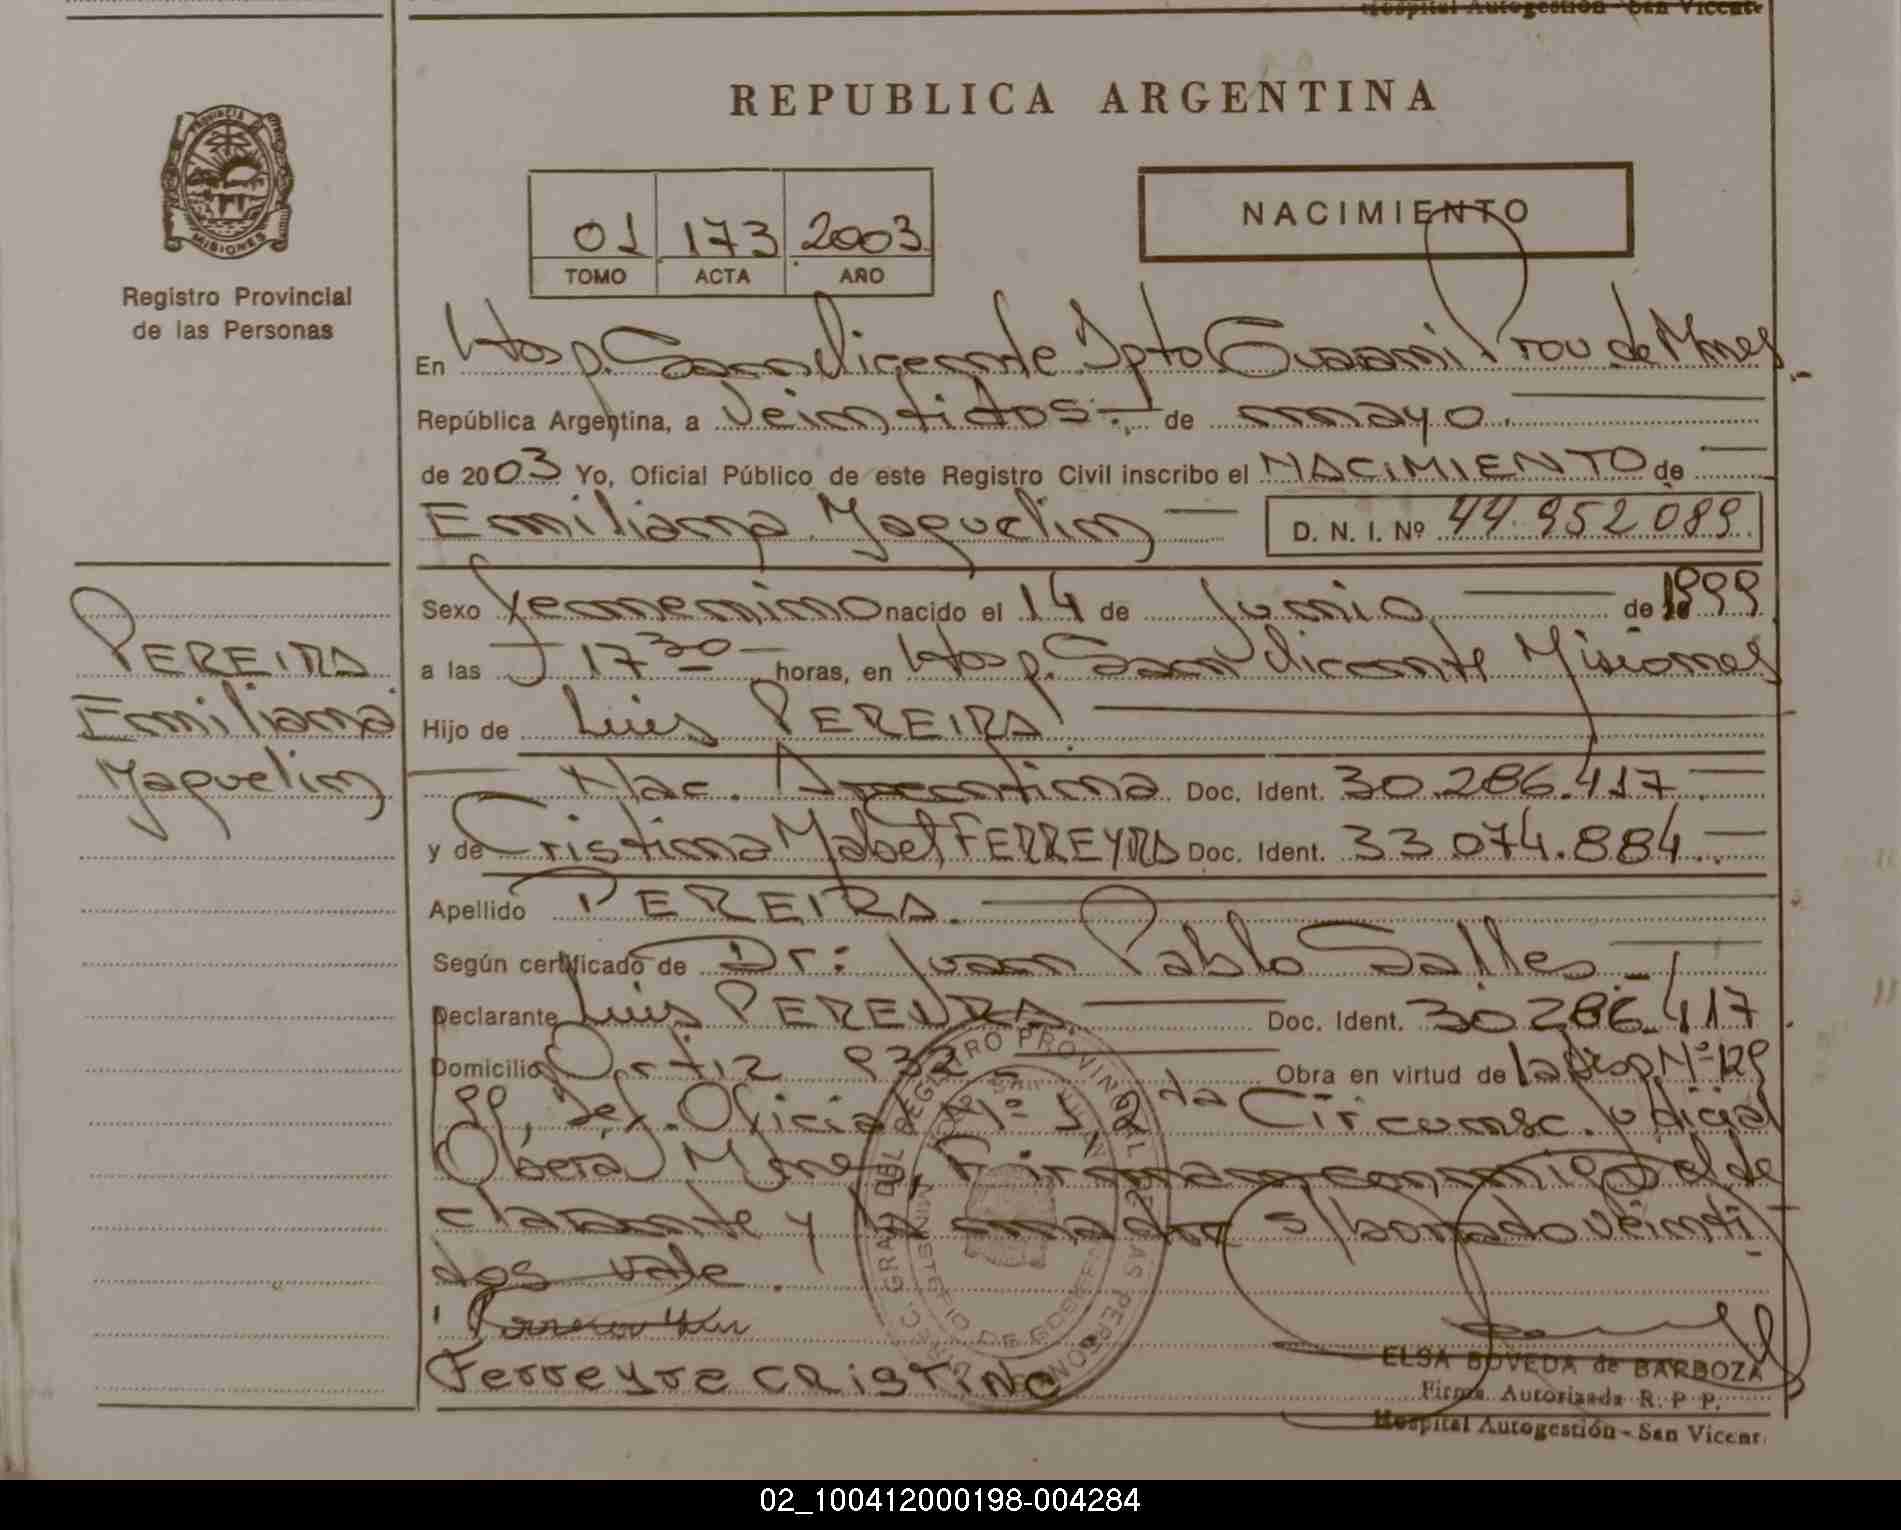 Hospital Autogestión - San Vicente
REPUBLICA ARGENTINA
PROVINCIA DE
MISIONES
Registro Provincial
de las Personas
01 173 2003
TOMO ACTA AÑO
NACIMIENTO
En Hosp. San Vicente Dpto Guarani Prov de Mnes
República Argentina, a veintidos.- de mayo.
de 2003 Yo, Oficial Público de este Registro Civil inscribo el NACIMIENTO de
Emiliana Yaquelin D. N. I. Nº 44.952.089.
Sexo femenino nacido el 14 de Junio de 1999
a las 17 30 horas, en Hosp. San Vicente Misiones
Hijo de Luis PEREIRA.
Nac. Argentina Doc. Ident. 30.286.417
y de Cristina Mabel FERREYRA Doc. Ident. 33.074.884.-
Apellido PEREIRA.
Según certificado de Dr: Juan Pablo Salles.-
Declarante Luis PEREIRA. Doc. Ident. 30.286.417
Domicilio Ortiz 932 Obra en virtud de la Disp. Nº 129
99, Def. Oficial Nº 1, 2da Circunsc. Judicial
Oberá Mnes, Firman conmigo el de
clarante y la madre s/borrado veinti
dos vale.
Ferreyra CRISTINA
PEREIRA
Emiliana
Yaquelin
ELSA BOVEDA de BARBOZA
Firma Autorizada R. P. P.
Hospital Autogestión - San Vicent.
02_100412000198-004284